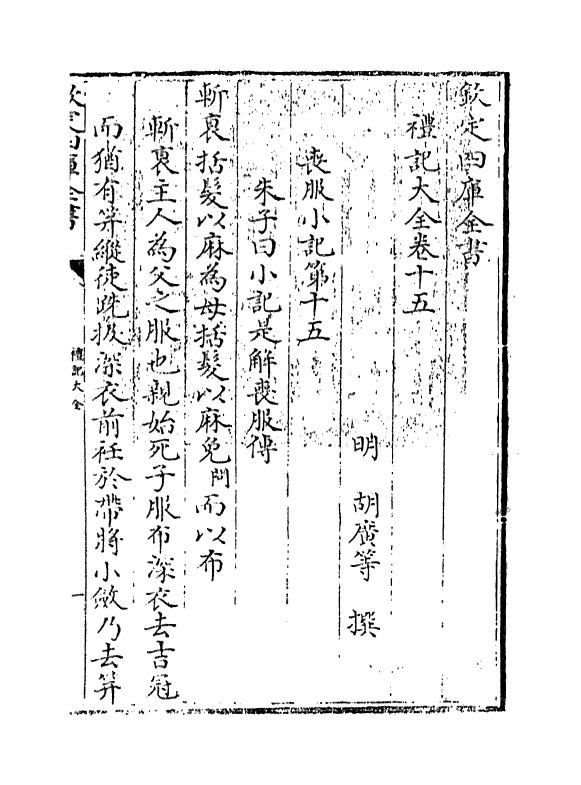 欽定四庫全書
禮記大全卷十五
明 胡廣等 撰
喪服小記第十五
朱子曰小記是解喪服傳
斬衰括髮以麻為母括髮以麻免問而以布
斬衰主人為父之服也親始死子服布深衣去吉冠
而猶有笄縰徒跣扱深衣前衽於帶將小斂乃去笄
欽定四庫全書
禮記大全
一